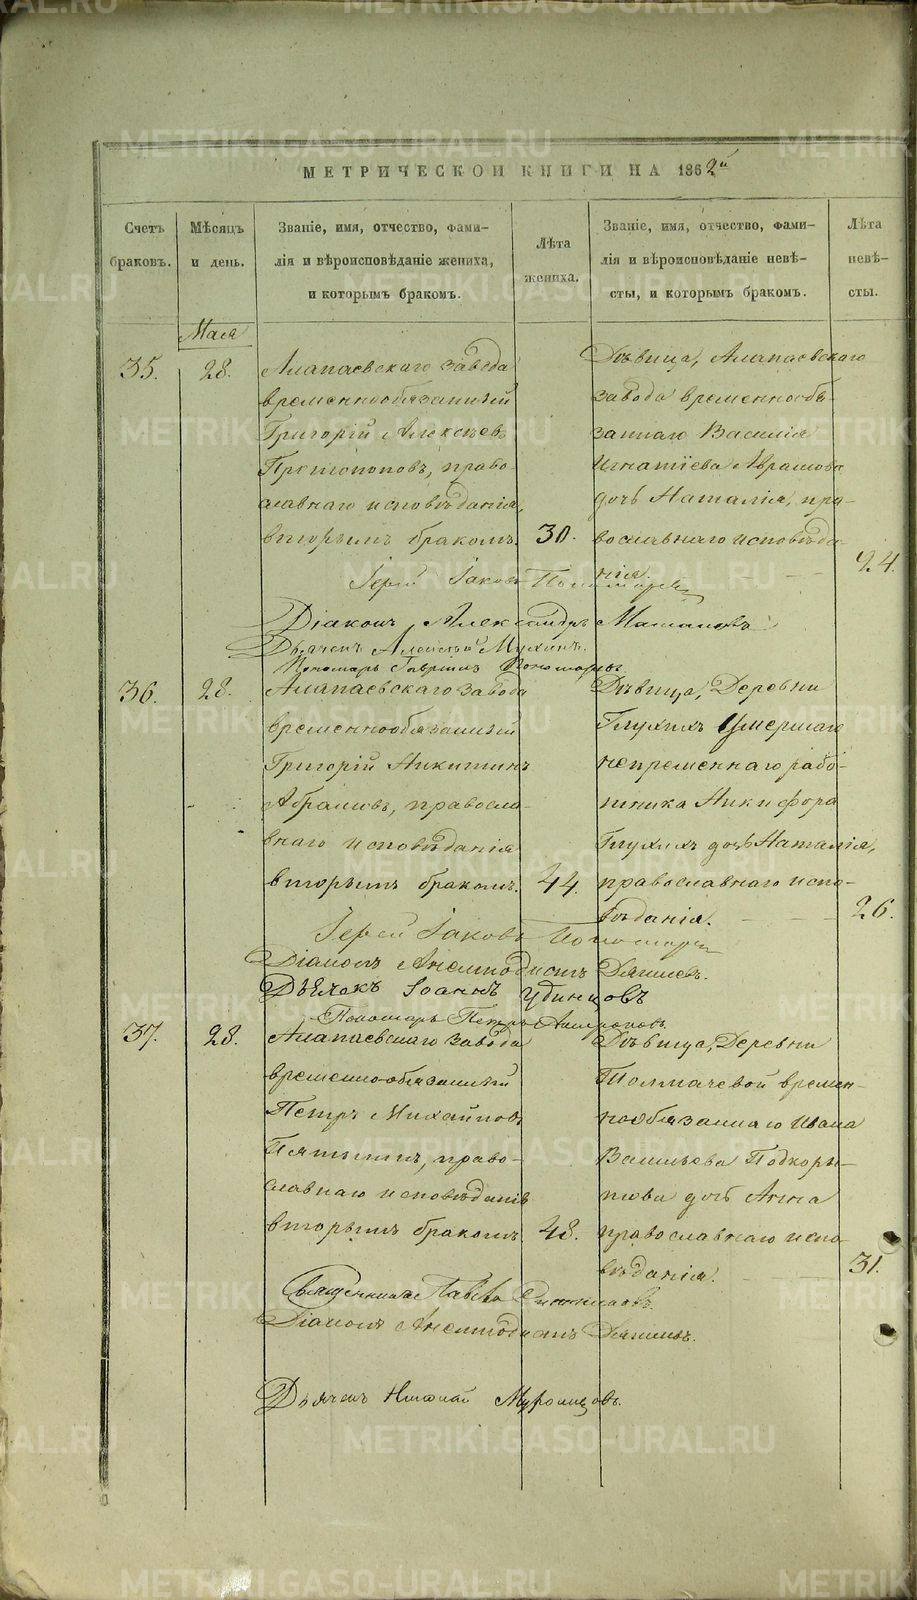 МЕТРИЧЕСКОЙ КНИГИ НА 1862й
Счетъ браковъ.
Мѣсяцъ и день.
Званіе, имя, отчество, фами-
лія и вѣроисповѣданіе жениха,
и которымъ бракомъ.
Лѣта
жениха.
Званіе, имя, отчество, фами-
лія и вѣроисповѣданіе невѣ-
сты, и которымъ бракомъ.
Лѣта
невѣ-
сты.
Мая
35.
28.
Алапаевскаго завода
временнообязанный
Григорій Алексѣевъ
Протопоповъ, право
славнаго исповѣданія,
вторымъ бракомъ.
30.
Дѣвица, Алапаевскаго
завода временнообя-
заннаго Василія
Игнатіева Абрамова
дочь Наталія, пра-
вославнаго исповѣда
нія.
24.
Іерей Іаковъ Пономаревъ
Діаконъ Александръ
Дьячекъ Алексѣй Мухинъ.
Пономарь Гавріилъ Пономаревъ
36.
28.
Алапаевскаго завода
временнообязанный
Григорій Никитинъ
Абрамовъ, правосла-
внаго исповѣданія
вторымъ бракомъ.
44.
Дѣвица, Деревни
Глухихъ умершаго
непременнаго рабо-
тника Никифора
Глухихъ дочь Наталія,
православнаго испо-
вѣданія.
26.
Іерей Іаковъ Пономаревъ
Діаконъ Анемподистъ Дягилевъ.
Дьячекъ Іоаннъ Удинцовъ
Пономарь Петръ
37.
28.
Алапаевскаго завода
временно-обязанный
Петръ Михайловъ
Пятыгинъ, право-
славнаго исповѣданія
вторымъ бракомъ
48.
Дѣвица, Деревни
Толмачевой времен-
нообязаннаго Ивана
Васильева Подкоры-
това дочь Анна
православнаго испо-
вѣданія.
31.
Священникъ Павелъ
Діаконъ Анемподистъ Дягилевъ.
Дьячекъ Николай Муромцовъ.
METRIKI.GASO-URAL.RU